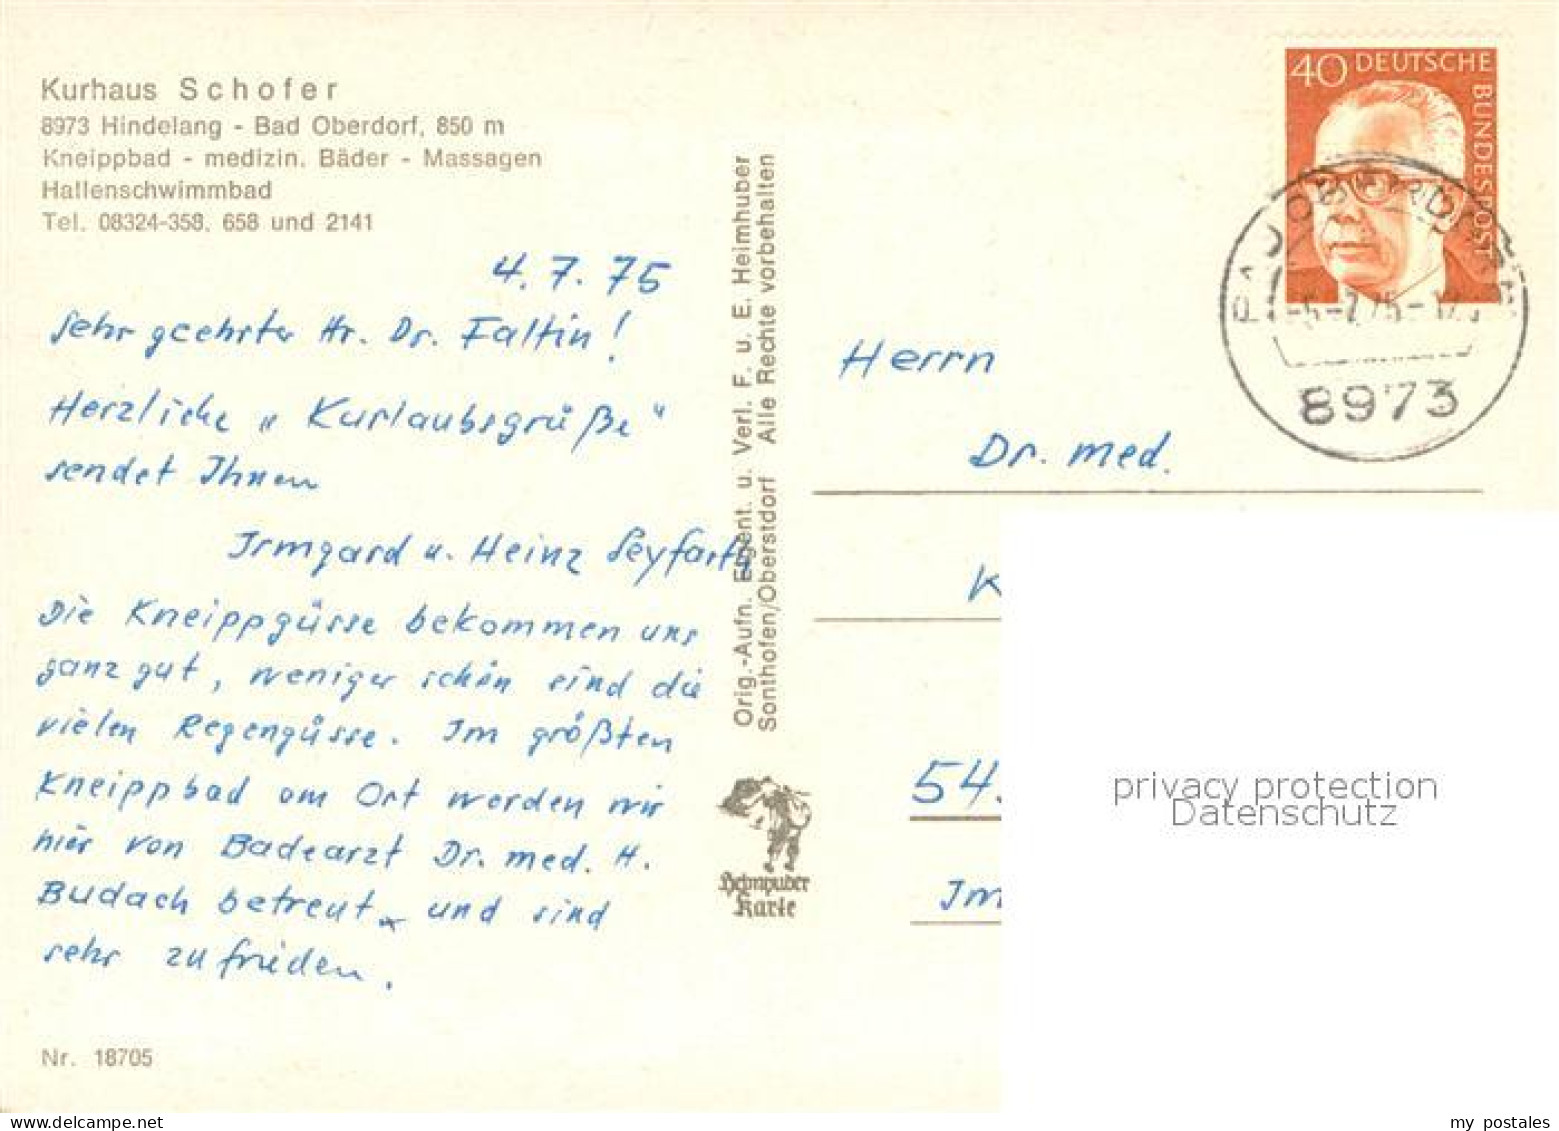 Kurhaus Schofer
8973 Hindelang - Bad Oberdorf, 850 m
Kneippbad - medizin. Bäder - Massagen
Hallenschwimmbad
Tel. 08324-358, 658 und 2141
4.7.75
Sehr geehrter Hr. Dr. Faltin!
Herzliche „Kurlaubsgrüße"
sendet Ihnen
Irmgard u. Heinz Seyfarth
Die Kneippgüsse bekommen uns
ganz gut, weniger schön sind die
vielen Regengüsse. Im größten
Kneippbad am Ort werden wir
hier von Badearzt Dr. med. H.
Budach betreut und sind
sehr zufrieden.
Nr. 18705
Orig.-Aufn. Eigent. u. Verl. F. u. E. Heimhuber
Sonthofen/Oberstdorf Alle Rechte vorbehalten
Heimhuber
Karte
40 DEUTSCHE
BUNDESPOST
8973
Herrn
Dr. med.
K
54
Im
privacy protection
Datenschutz
my postales